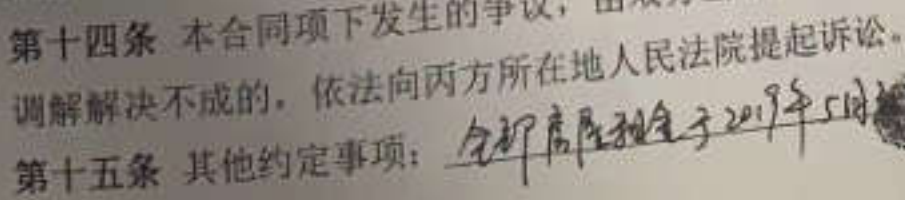 第十四条 本合同项下发生的争议，由双
调解解决不成的，依法向丙方所在地人民法院提起诉讼。
第十五条 其他约定事项：全部房屋租金于2019年5月